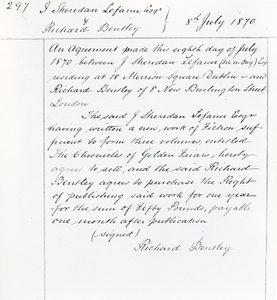 297
J Sheridan Lefanu Esqr
&
Richard Bentley
8th July 1870
An Agreement made this eighth day of July
1870 between J Sheridan Lefanu Esq
residing at 18 Merrion Square Dublin – and
Richard Bentley of 8 New Burlington Street
London
The said J Sheridan Lefanu Esqr
having written a new work of Fiction suf
ficient to form three volumes entitled
The Chronicles of Golden Friars, hereby
agrees to sell, and the said Richard
Bentley agrees to purchase the Right
of publishing said work for one year
for the sum of Fifty Pounds, payable
one month after publication
(signed)
Richard Bentley